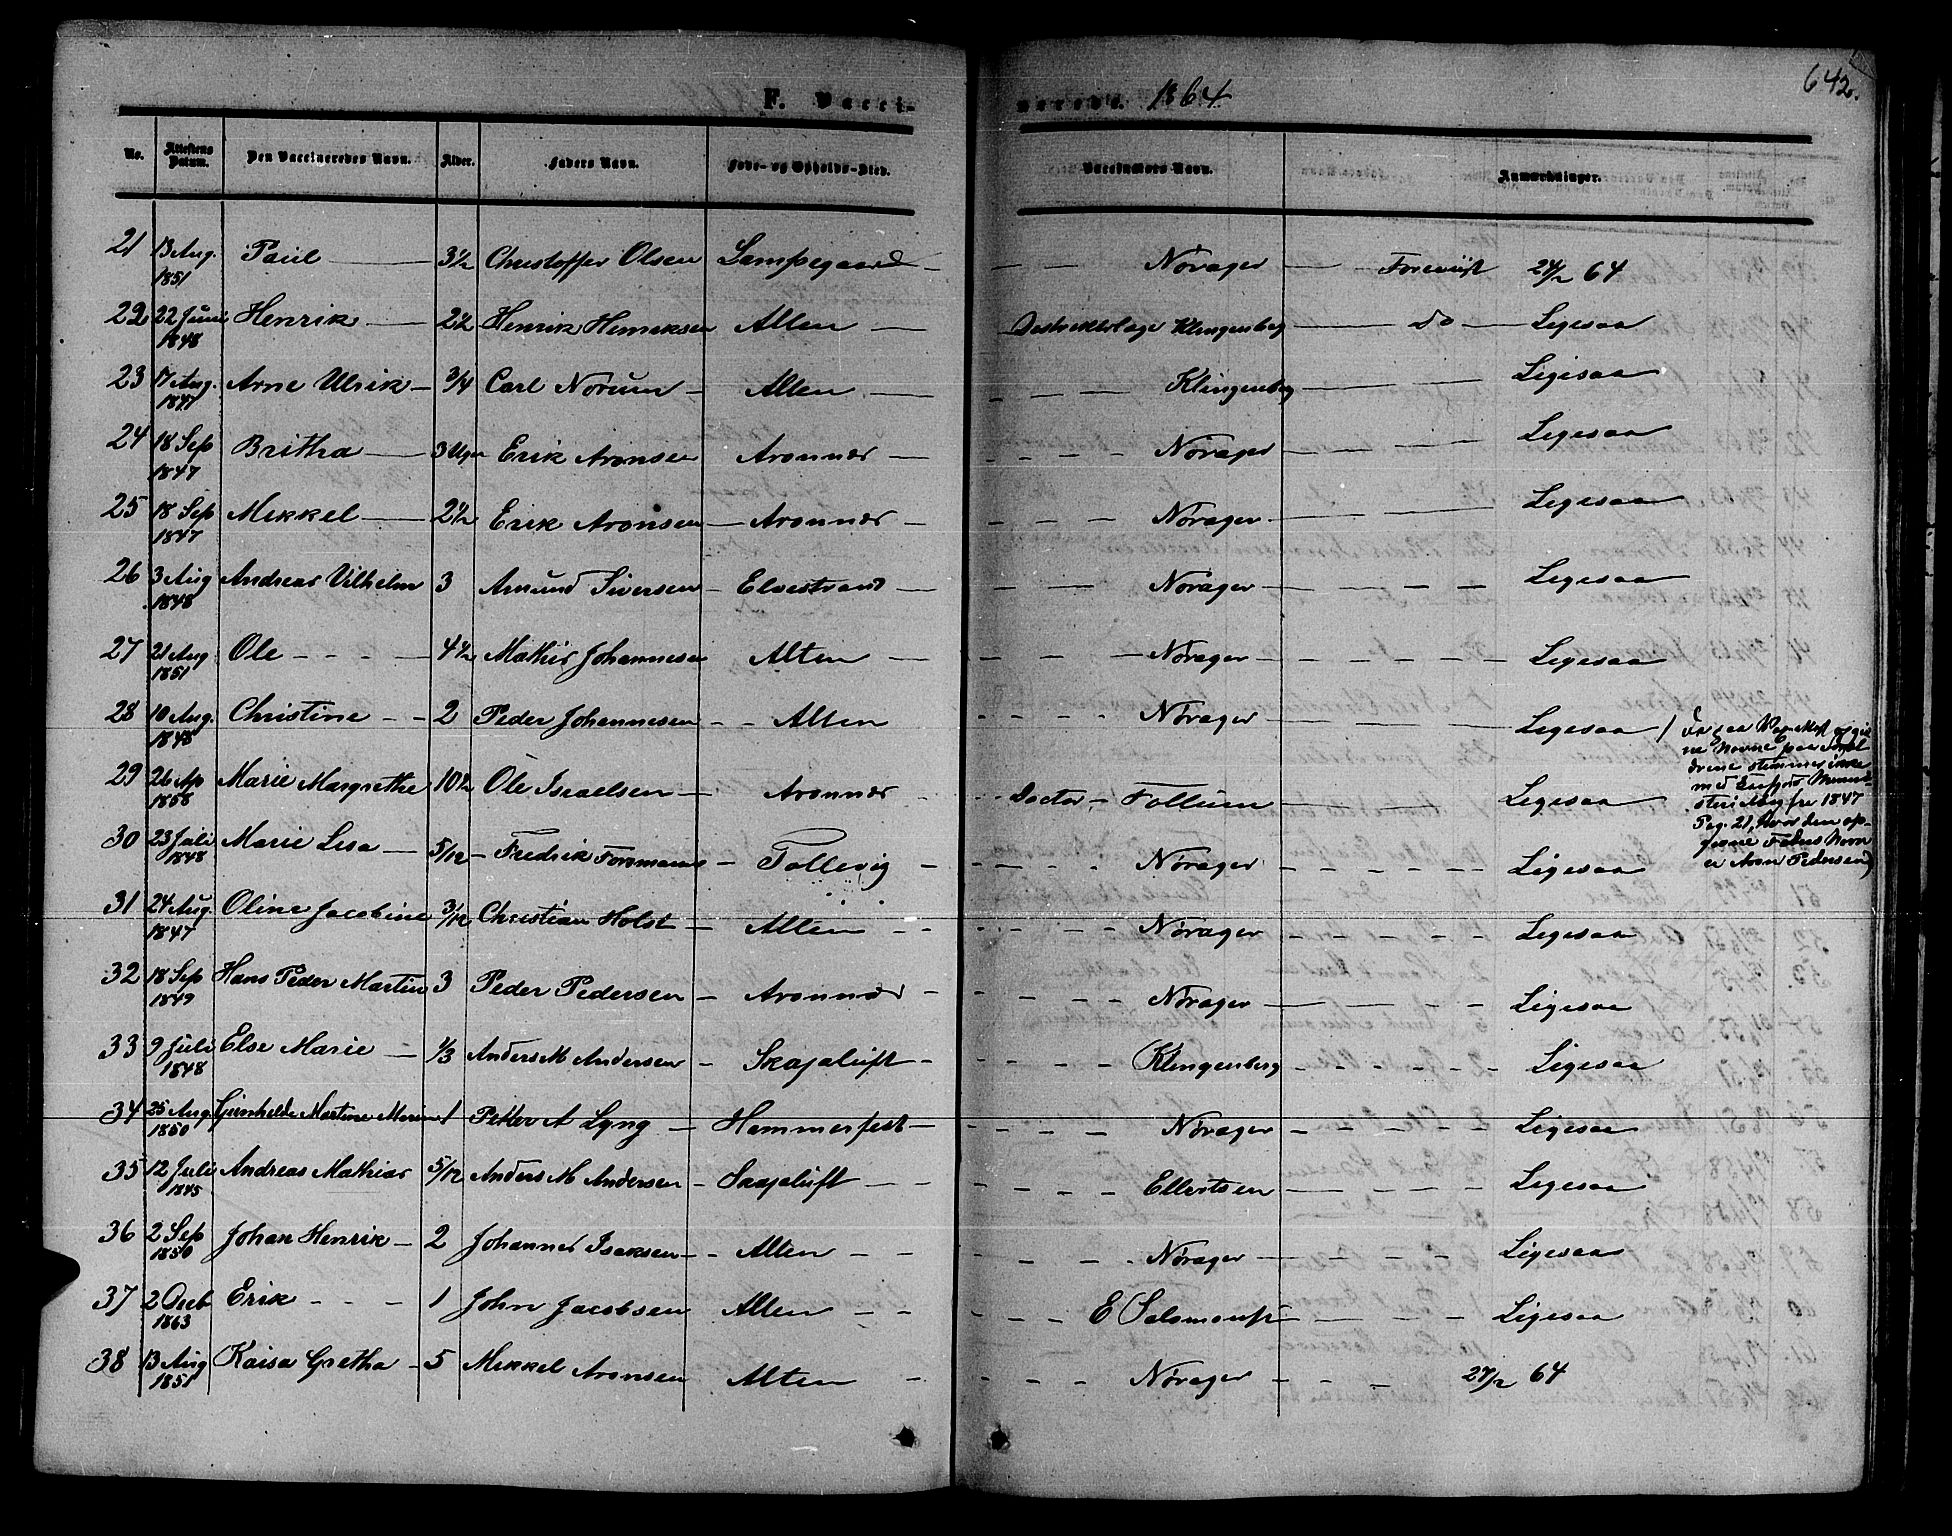 642.
F. Vacci- nerede. 1864
No. Attestens Datum. Den Vaccineredes Navn. Alder. Faders Navn. Føde- og Opholds-Sted. Vaccinators Navn. Anmærkninger.
21 13 Aug. 1851 Paul 3½ Christoffer Olsen Lampegaard Nørager Foreviist 24/2 64
22 22 Juni 1848 Henrik 2½ Henrik Henriksen Alten Distriktslæge Klingenberg do Ligesaa
23 17 Aug. 1847 Arne Ulrik 3/4 Carl Norum Alten Klingenberg Ligesaa
24 18 Sep 1847 Britha 3 Uger Erik Aronsen Aronnæs Nørager Ligesaa
25 18 Sep 1847 Mikkel 2½ Erik Aronsen Aronnæs Nørager Ligesaa
26 3 Aug 1848 Andreas Vilhelm 3 Amund Siversen Elvestrand Nørager Ligesaa
27 21 Aug 1851 Ole 4½ Mathis Johannesen Alten Nørager Ligesaa
28 10 Aug. 1848 Christine 2 Peder Johannesen Alten Nørager Ligesaa
29 26 Ap 1858 Marie Margrethe 10½ Ole Israelsen Aronnæs Doctor Follum Ligesaa
ne Navne paa Foræl
drene stemmer ikke
med
1847
Pag. 21, hvor den op-
givne Faders Navn
er Aron Pedersen)
30 23 Juli 1848 Marie Lisa 5/12 Fredrik Forsmann Tollevig Nørager Ligesaa
31 24 Aug. 1847 Oline Jacobine 3/12 Christian Holst Alten Nørager Ligesaa
32 18 Sep 1849 Hans Peder Martin 3 Peder Pedersen Aronnæs Nørager Ligesaa
33 9 Juli 1848 Else Marie 1/3 Anders M Andersen Skajaluft Klingenberg Ligesaa
34 25 Aug. 1850 Gunhilde Martine Marie 1 Petter A Lyng Hammerfest Nørager Ligesaa
35 12 Juli 1845 Andreas Mathias 5/12 Anders M Andersen Skajaluft Ellertsen Ligesaa
36 2 Sep 1850 Johan Henrik 2 Johannes Isaksen Alten Nørager Ligesaa
37 2 Decb 1863 Erik 1 John Jacobsen Alten E Ligesaa
38 13 Aug 1851 Kaisa Gretha 5 Mikkel Aronsen Alten Nørager 27/2 64